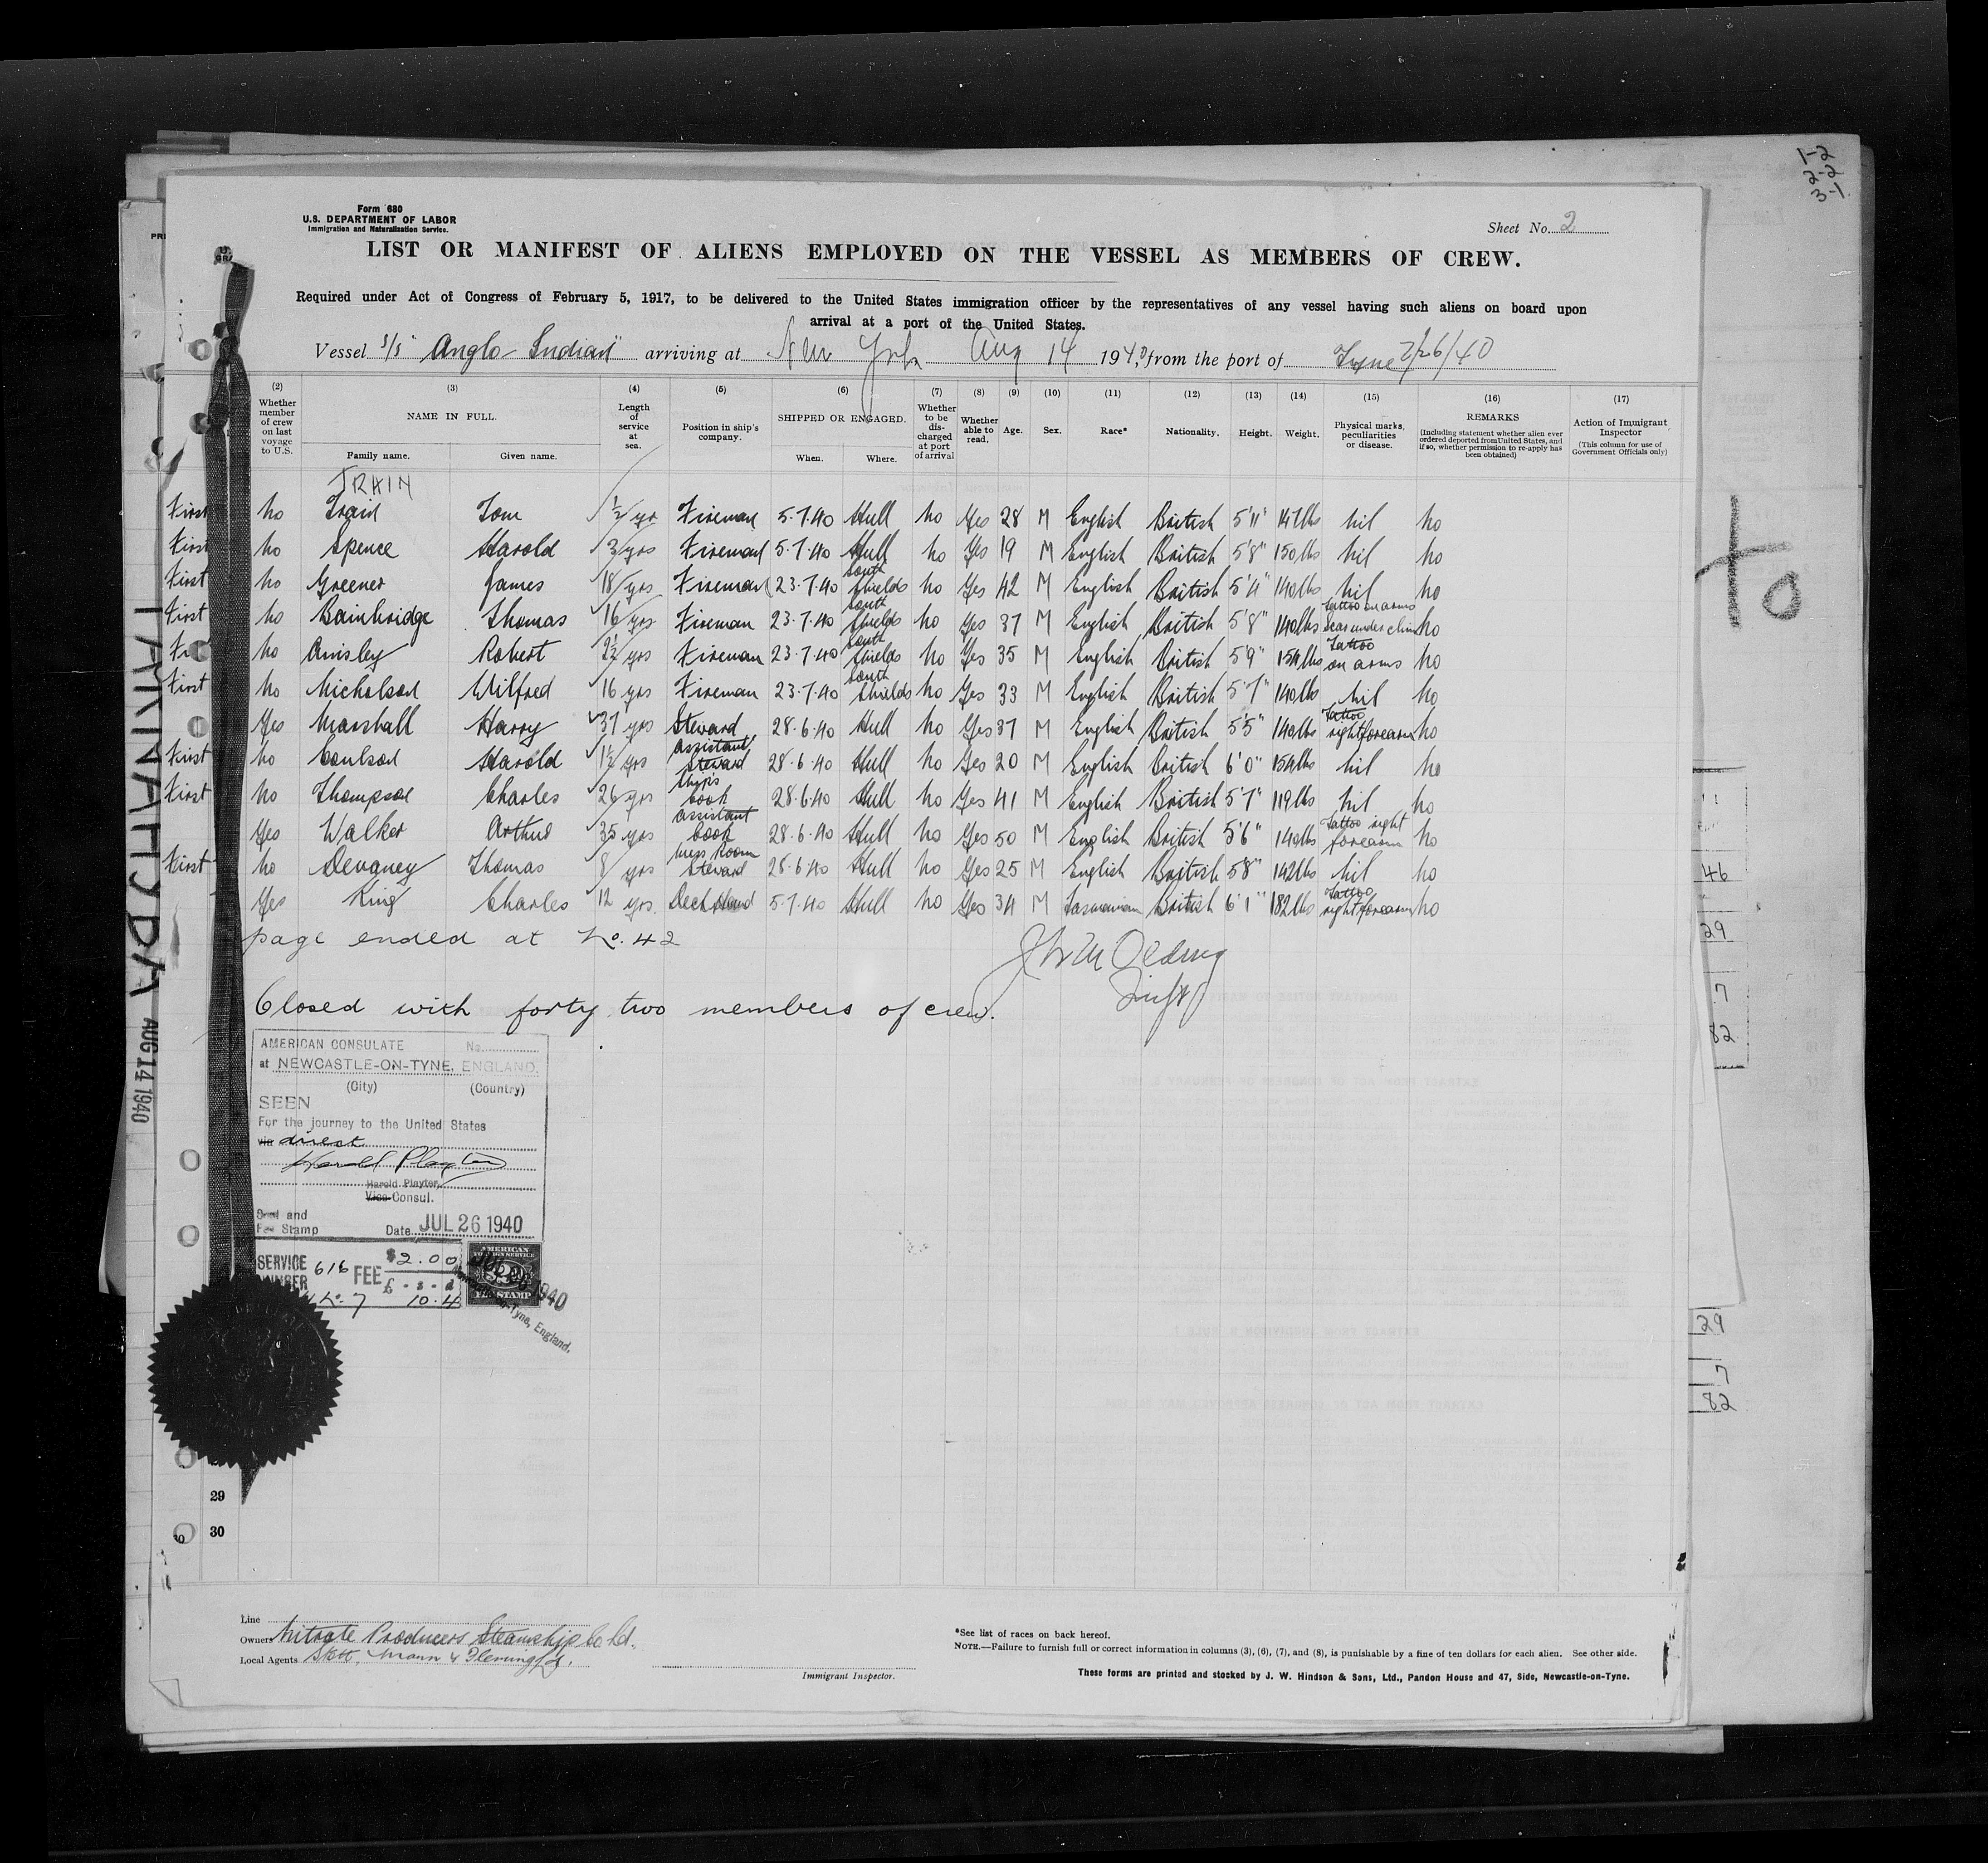 1-2
2-2
3-1
Form 680
U.S. DEPARTMENT OF LABOR
Immigration and Naturalization Service.
Sheet No. 2
LIST OR MANIFEST OF ALIENS EMPLOYED ON THE VESSEL AS MEMBERS OF CREW.
Required under Act of Congress of February 5, 1917, to be delivered to the United States immigration officer by the representatives of any vessel having such aliens on board upon
arrival at a port of the United States.
Vessel s/s "Anglo Indian" arriving at New York Aug 14 1940, from the port of Tyne 7/26/40
(2) Whether member of crew on last voyage to U.S. (3) NAME IN FULL. Family name. Given name. (4) Length of service at sea. (5) Position in ship's company. (6) SHIPPED OR ENGAGED. When. Where. (7) Whether to be discharged at port of arrival (8) Whether able to read. (9) Age. (10) Sex. (11) Race* (12) Nationality. (13) Height. (14) Weight. (15) Physical marks, peculiarities or disease. (16) REMARKS (Including statement whether alien ever ordered deported from United States, and if so, whether permission to re-apply has been obtained) (17) Action of Immigrant Inspector (This column for use of Government Officials only)
TRAIN
First no Train Tom ½ yr Fireman 5.7.40 Hull no Yes 28 M English British 5'11" 147lbs nil no
First no Spence Harold 3 yrs Fireman 5.7.40 Hull no Yes 19 M English British 5'8" 150lbs nil no
First no Greener James 18 yrs Fireman 23.7.40 South Shields no Yes 42 M English British 5'4" 140lbs nil no
First no Bainbridge Thomas 16 yrs Fireman 23.7.40 South Shields no Yes 37 M English British 5'8" 140lbs Tattoo on arms Scar under chin no
First no Ainsley Robert 2½ yrs Fireman 23.7.40 South Shields no Yes 35 M English British 5'9" 154lbs Tattoo on arms no
First no Nicholson Wilfred 16 yrs Fireman 23.7.40 South Shields no Yes 33 M English British 5'7" 140lbs nil no
Yes Marshall Harry 37 yrs Steward 28.6.40 Hull no Yes 37 M English British 5'5" 140lbs Tattoo right forearm no
First no Coulson Harold 1½ yrs Assistant Steward 28.6.40 Hull no Yes 20 M English British 6'0" 154lbs nil no
First no Thompson Charles 26 yrs Ship's Cook 28.6.40 Hull no Yes 41 M English British 5'7" 119lbs nil no
Yes Walker Arthur 35 yrs Assistant Cook 28.6.40 Hull no Yes 50 M English British 5'6" 140lbs Tattoo right forearm no
First no Devaney Thomas 8 yrs Mess Room Steward 28.6.40 Hull no Yes 25 M English British 5'8" 142lbs nil no
Yes King Charles 12 yrs. Deck Hand 5.7.40 Hull no Yes 34 M Tasmanian British 6'1" 182lbs Tattoo right forearm no
page ended at No. 42
Closed with forty two members of crew.
AMERICAN CONSULATE No.
at NEWCASTLE-ON-TYNE, ENGLAND.
(City) (Country)
SEEN
For the journey to the United States
via direct
Harold Playter
Harold Playter,
Vice Consul.
Seal and
Fee Stamp Date JUL 26 1940
SERVICE NUMBER 616 FEE $2.00
£ . s . d
No. 7 10.4
AMERICAN
FOREIGN SERVICE
FEE STAMP
1940
-on-Tyne, England.
AUG 14 1940
to
46
29
7
82
29
7
82
29
30
30
Line
Owners Nitrate Producers Steamship Co Ld.
Local Agents
Immigrant Inspector.
*See list of races on back hereof.
NOTE.—Failure to furnish full or correct information in columns (3), (6), (7), and (8), is punishable by a fine of ten dollars for each alien. See other side.
These forms are printed and stocked by J. W. Hindson & Sons, Ltd., Pandon House and 47, Side, Newcastle-on-Tyne.